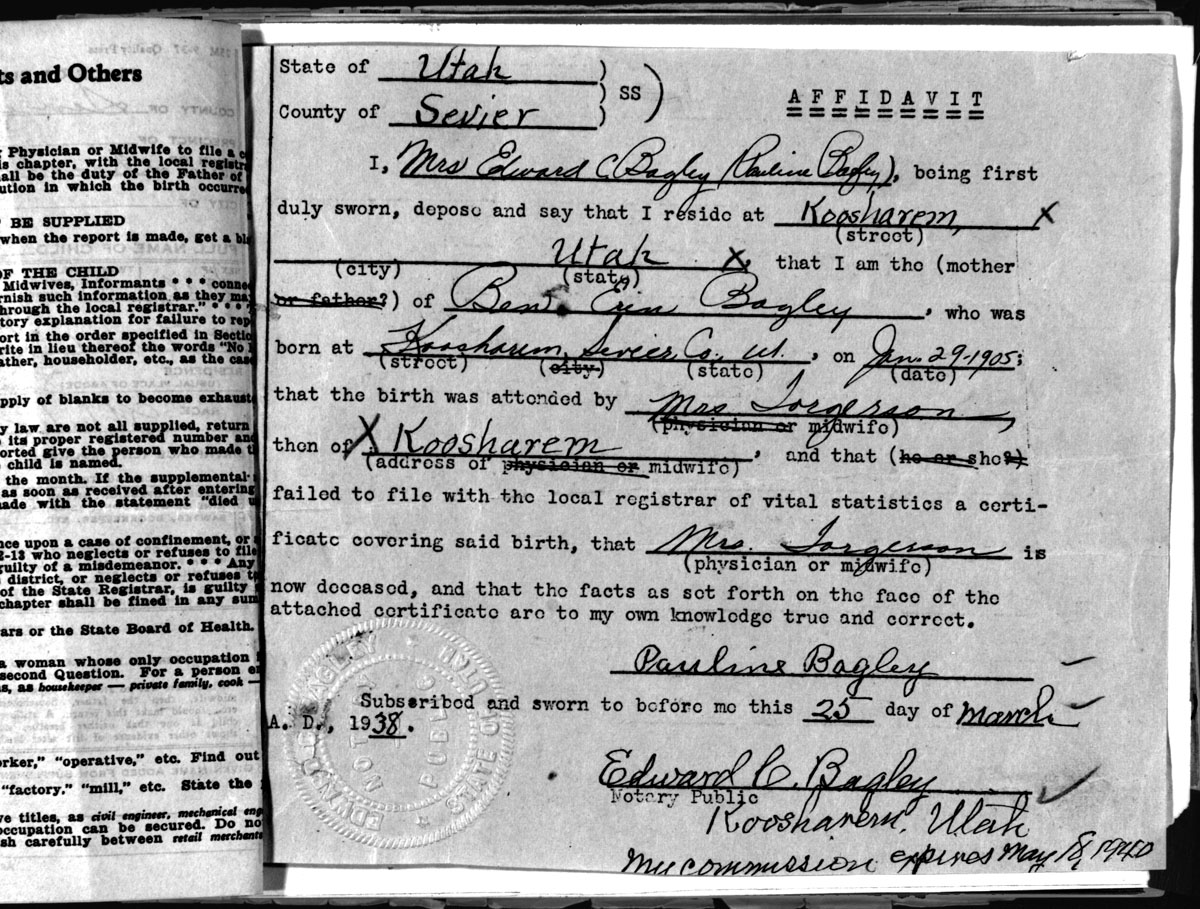 25M 9-37 Quality Press
ts and Others
g Physician or Midwife to file a c
is chapter, with the local registr
all be the duty of the Father of
ution in which the birth occurre
BE SUPPLIED
when the report is made, get a bl
OF THE CHILD
Midwives, Informants * * * conne
rnish such information as they may
through the local registrar." * * *
tory explanation for failure to rep
ort in the order specified in Sectio
rite in lieu thereof the words "No
ather, householder, etc., as the cas
pply of blanks to become exhaust
y law are not all supplied, return
its proper registered number an
orted give the person who made t
child is named.
the month. If the supplemental
as soon as received after entering
ade with the statement "died
nce upon a case of confinement, or
2-13 who neglects or refuses to file
guilty of a misdemeanor. * * * Any
district, or neglects or refuses t
of the State Registrar, is guilty
chapter shall be fined in any sum
ars or the State Board of Health.
a woman whose only occupation
second Question. For a person e
s, as housekeeper — private family, cook —
orker," "operative," etc. Find out
"factory," "mill," etc. State the
ve titles, as civil engineer, mechanical eng
occupation can be secured. Do no
sh carefully between retail merchants
State of Utah )
) SS )
County of Sevier )
AFFIDAVIT
I, Mrs Edward C Bagley (Pauline Bagley), being first
duly sworn, depose and say that I reside at Koosharem, X
(street)
Utah X, that I am the (mother
(city) (state)
or father?) of Ben Erin Bagley, who was
born at Koosharem, Sevier, Co. Ut., on Jan. 29-1905;
(street) (city) (state) (date)
that the birth was attended by Mrs Torgerson,
(physician or midwife)
then of X Koosharem, and that (he or she?)
(address of physician or midwife)
failed to file with the local registrar of vital statistics a certi-
ficate covering said birth, that Mrs. Torgerson is
(physician or midwife)
now deceased, and that the facts as set forth on the face of the
attached certificate are to my own knowledge true and correct.
Pauline Bagley
Subscribed and sworn to before me this 25 day of March
A. D., 1938.
EDWARD C. BAGLEY
NOTARY PUBLIC
STATE OF UTAH
Edward C. Bagley
Notary Public
Koosharem, Utah
My commission expires May 18, 1940